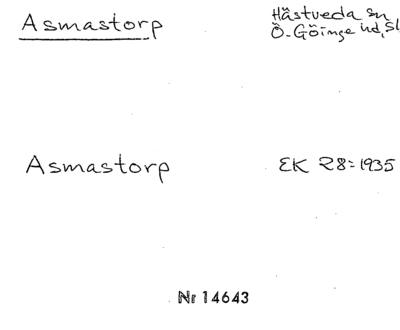 Asmastorp
Hästveda sn
Ö. Göinge hd, Sk
Asmastorp
EK 28:1935
Nr 14643